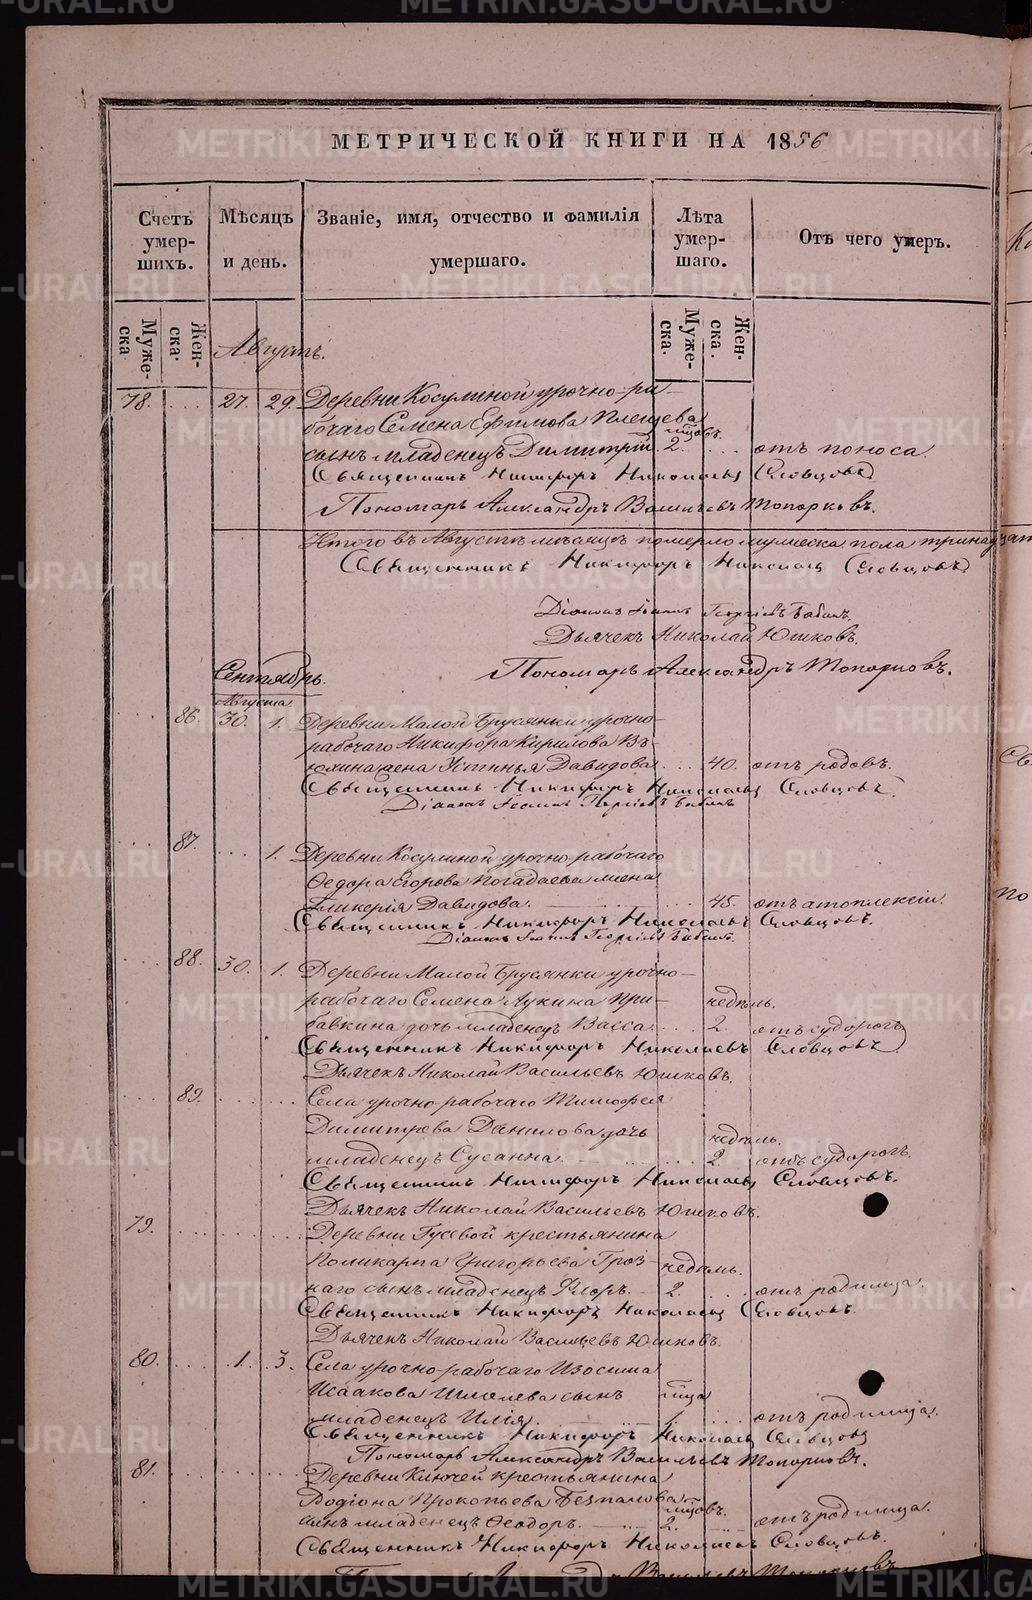 МЕТРИЧЕСКОЙ КНИГИ НА 1856
Счетъ умер-шихъ.
Мѣсяцъ и день.
Званіе, имя, отчество и фамилія умершаго.
Лѣта умер-шаго.
Отъ чего умеръ.
Муже-ска
Жен-ска.
Муже-ска.
Жен-ска.
Августъ.
78. 27. 29. Деревни Косулиной урочно-ра-
бочаго Семена Ефимова Плещева мцовъ.
сынъ младенецъ Димитрій 2. отъ поноса.
Священникъ Никифоръ Николаевъ Словцовъ
Пономарь Александръ Васильевъ Топорковъ.
Итого въ Августѣ мѣсяцѣ померло мужеска пола тринадцат
Священникъ Никифоръ Николаевъ Словцовъ
Діаконъ Іоаннъ Георгіевъ Бабинъ.
Дьячекъ Николай Юшковъ.
Пономарь Александръ Топорковъ.
Сентябрь.
Августа
86. 30. 1. Деревни Малой Брусянки урочно-
рабочаго Никифора Кирилова Въ-
юхина жена Устинья Давидова 40. отъ родовъ.
Священникъ Никифоръ Николаевъ Словцовъ.
Діаконъ Іоаннъ Георгіевъ Бабинъ
87. 1. Деревни Косулиной урочно-рабочаго
Ѳедора Егорова Погадаева жена
Гликерія Давидова. 45. отъ апоплексіи.
Священникъ Никифоръ Николаевъ Словцовъ.
Діаконъ Іоаннъ Георгіевъ Бабинъ.
88. 30. 1. Деревни Малой Брусянки урочно-
рабочаго Семена Лукина При- недѣль.
бавкина дочь младенецъ Васса. 2. отъ судорогъ
Священникъ Никифоръ Николаевъ Словцовъ
Дьячекъ Николай Васильевъ Юшковъ.
89. Села урочно-рабочаго Тимофея
Димитрева Данилова дочь недѣль.
младенецъ Сусанна. 2. отъ судорогъ.
Священникъ Никифоръ Николаевъ Словцовъ.
Дьячекъ Николай Васильевъ Юшковъ.
79. Деревни Гусевой крестьянина
Поликарпа Григорьева Гроз- недѣль.
наго сынъ младенецъ Флоръ. 2. отъ родимца.
Священникъ Никифоръ Николаевъ Словцовъ.
Дьячекъ Николай Васильевъ Юшковъ.
80. 1. 3. Села урочно-рабочаго Изосима
Исаакова Шмелева сынъ мца
младенецъ Илія. 1. отъ родимца.
Священникъ Никифоръ Николаевъ Словцовъ
Пономарь Александръ Васильевъ Топорковъ.
81. Деревни Ключей крестьянина
Родіона Прокопьева Безпалова мцовъ.
сынъ младенецъ Ѳеодоръ. 2. отъ родимца.
Священникъ Никифоръ Николаевъ Словцовъ.
METRIKI.GASO-URAL.RU